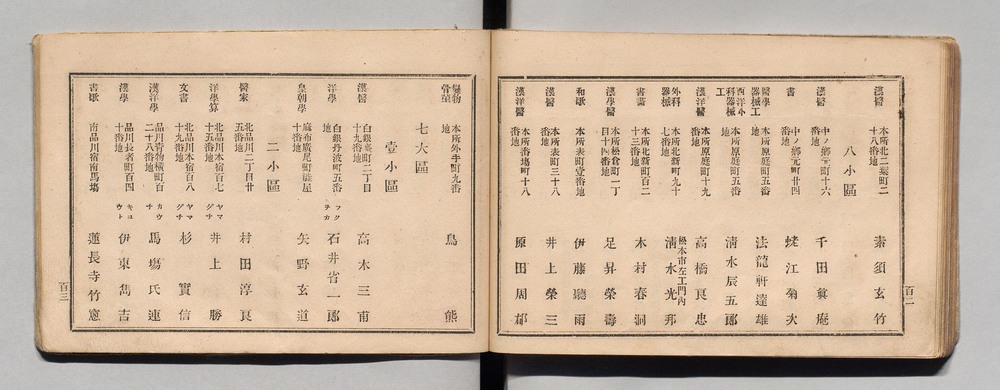 漢醫 本所北二葉町二十八番地 素須玄竹
八小區
漢醫 中ノ郷元町十六番地 千田眞庵
書 中ノ郷元町廿四番地 蜷江菊次
醫學器械工 本所原庭町五番地 法龍軒達雄
西洋小科器械工 本所原庭町五番地 淸水辰五郎
漢洋醫 本所原庭町十九番地 高橋良忠
外科器械 本所北新町九十七番地 松本市左エ門内 淸水光邦
書畵 本所北新町百二十三番地 木村春洞
漢學醫 本所松倉町一丁目十四番地 足昇榮壽
和歌 本所表町壹番地 伊藤聽雨
漢醫 本所表町三十八番地 井上榮三
漢洋醫 本所番塲町十八番地 原田周郁
百二
物骨董 本所外手町九番地 鳥熊
七大區
壹小區
漢醫 白銀臺町二丁目十九番地 高木三甫
洋學 白銀丹波町五番地 フクヂカ 石井省一郎
皇朝學 麻布廣尾町雄屋十番地 矢野玄道
二小區
醫家 北品川二丁目廿五番地 村田淳良
洋學算 北品川本宿百七十五番地 ヤマグチ 井上勝
文書 北品川本宿百八十九番地 ヤマグチ 杉實信
漢洋學 品川靑物橫町百二十八番地 カウチ 馬塲氏連
漢學 品川長者町百四十番地 キユウト 伊東雋吉
書歌 南品川宿南馬塲 蓮長寺竹窓
百三